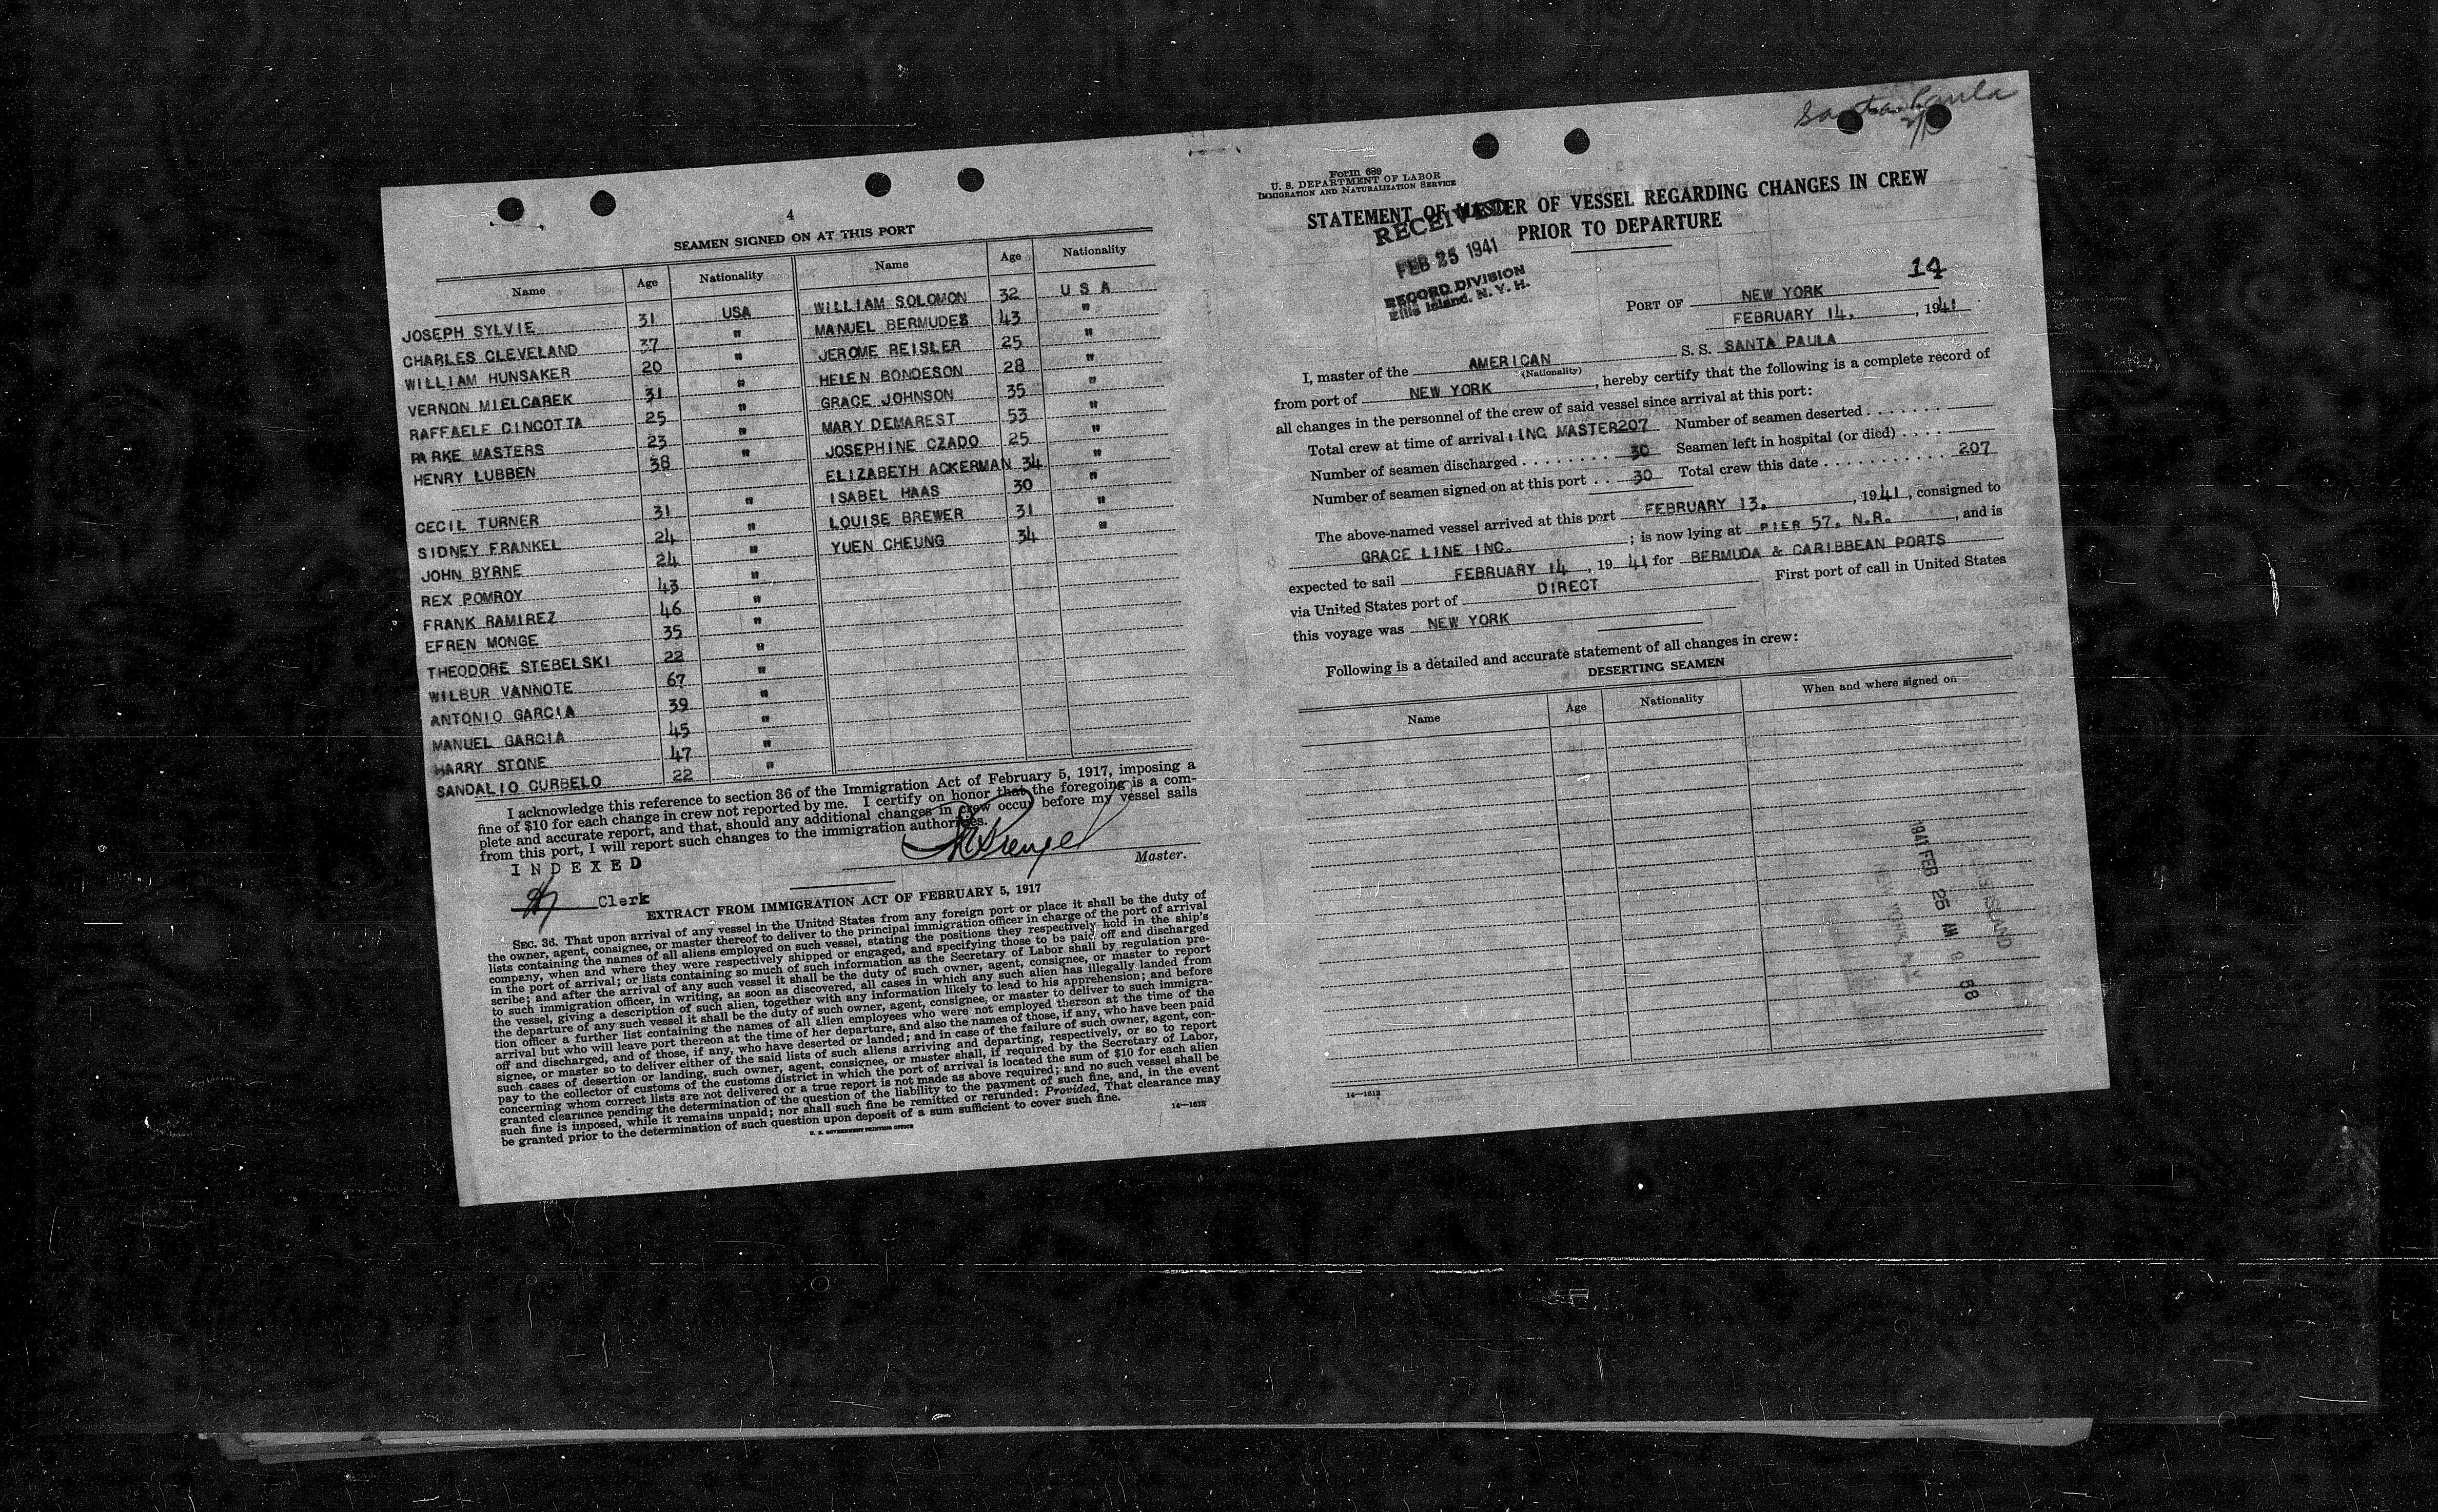 4
SEAMEN SIGNED ON AT THIS PORT
Name Age Nationality Name Age Nationality
JOSEPH SYLVIE 31 USA WILLIAM SOLOMON 32 U S A
CHARLES CLEVELAND 37 " MANUEL BERMUDES 43 "
WILLIAM HUNSAKER 20 " JEROME REISLER 25 "
VERNON MIELCAREK 31 " HELEN BONDESON 28 "
RAFFAELE CINCOTTA 25 " GRACE JOHNSON 35 "
PARKE MASTERS 23 " MARY DEMAREST 53 "
HENRY LUBBEN 38 " JOSEPHINE CZADO 25 "
ELIZABETH ACKERMAN 34 "
CECIL TURNER 31 " ISABEL HAAS 30 "
SIDNEY FRANKEL 24 " LOUISE BREWER 31 "
JOHN BYRNE 24 " YUEN CHEUNG 34 "
REX POMROY 43 "
FRANK RAMIREZ 46 "
EFREN MONGE 35 "
THEODORE STEBELSKI 22 "
WILBUR VANNOTE 67 "
ANTONIO GARCIA 39 "
MANUEL GARCIA 45 "
HARRY STONE 47 "
SANDALIO CURBELO 22 "
I acknowledge this reference to section 36 of the Immigration Act of February 5, 1917, imposing a
fine of $10 for each change in crew not reported by me. I certify on honor that the foregoing is a com-
plete and accurate report, and that, should any additional changes in crew occur before my vessel sails
from this port, I will report such changes to the immigration authorities.
INDEXED
Master.
Clerk
EXTRACT FROM IMMIGRATION ACT OF FEBRUARY 5, 1917
SEC. 36. That upon arrival of any vessel in the United States from any foreign port or place it shall be the duty of
the owner, agent, consignee, or master thereof to deliver to the principal immigration officer in charge of the port of arrival
lists containing the names of all aliens employed on such vessel, stating the positions they respectively hold in the ship's
company, when and where they were respectively shipped or engaged, and specifying those to be paid off and discharged
in the port of arrival; or lists containing so much of such information as the Secretary of Labor shall by regulation pre-
scribe; and after the arrival of any such vessel it shall be the duty of such owner, agent, consignee, or master to report
to such immigration officer, in writing, as soon as discovered, all cases in which any such alien has illegally landed from
the vessel, giving a description of such alien, together with any information likely to lead to his apprehension; and before
the departure of any such vessel it shall be the duty of such owner, agent, consignee, or master to deliver to such immigra-
tion officer a further list containing the names of all alien employees who were not employed thereon at the time of the
arrival but who will leave port thereon at the time of her departure, and also the names of those, if any, who have been paid
off and discharged, and of those, if any, who have deserted or landed; and in case of the failure of such owner, agent, con-
signee, or master so to deliver either of the said lists of such aliens arriving and departing, respectively, or so to report
such cases of desertion or landing, such owner, agent, consignee, or master shall, if required by the Secretary of Labor,
pay to the collector of customs of the customs district in which the port of arrival is located the sum of $10 for each alien
concerning whom correct lists are not delivered or a true report is not made as above required; and no such vessel shall be
granted clearance pending the determination of the question of the liability to the payment of such fine, and, in the event
such fine is imposed, while it remains unpaid; nor shall such fine be remitted or refunded: Provided, That clearance may
be granted prior to the determination of such question upon deposit of a sum sufficient to cover such fine.
U. S. GOVERNMENT PRINTING OFFICE
14—1613
Santa Paula
Form 689
U. S. DEPARTMENT OF LABOR
IMMIGRATION AND NATURALIZATION SERVICE
STATEMENT OF MASTER OF VESSEL REGARDING CHANGES IN CREW
PRIOR TO DEPARTURE
RECEIVED
FEB 25 1941
RECORD DIVISION
Ellis Island, N. Y. H.
14
PORT OF NEW YORK
FEBRUARY 14, , 1941
I, master of the AMERICAN S. S. SANTA PAULA
(Nationality)
from port of NEW YORK , hereby certify that the following is a complete record of
all changes in the personnel of the crew of said vessel since arrival at this port:
Total crew at time of arrival: INC MASTER 207 Number of seamen deserted
Number of seamen discharged 30 Seamen left in hospital (or died)
Number of seamen signed on at this port 30 Total crew this date 207
The above-named vessel arrived at this port FEBRUARY 13, , 1941, consigned to
GRACE LINE INC. ; is now lying at PIER 57, N.R. , and is
expected to sail FEBRUARY 14 , 19 41 for BERMUDA & CARIBBEAN PORTS
via United States port of DIRECT First port of call in United States
this voyage was NEW YORK
Following is a detailed and accurate statement of all changes in crew:
DESERTING SEAMEN
Name Age Nationality When and where signed on
1941 FEB 25 AM
NEW YORK, N.Y.
14—1613